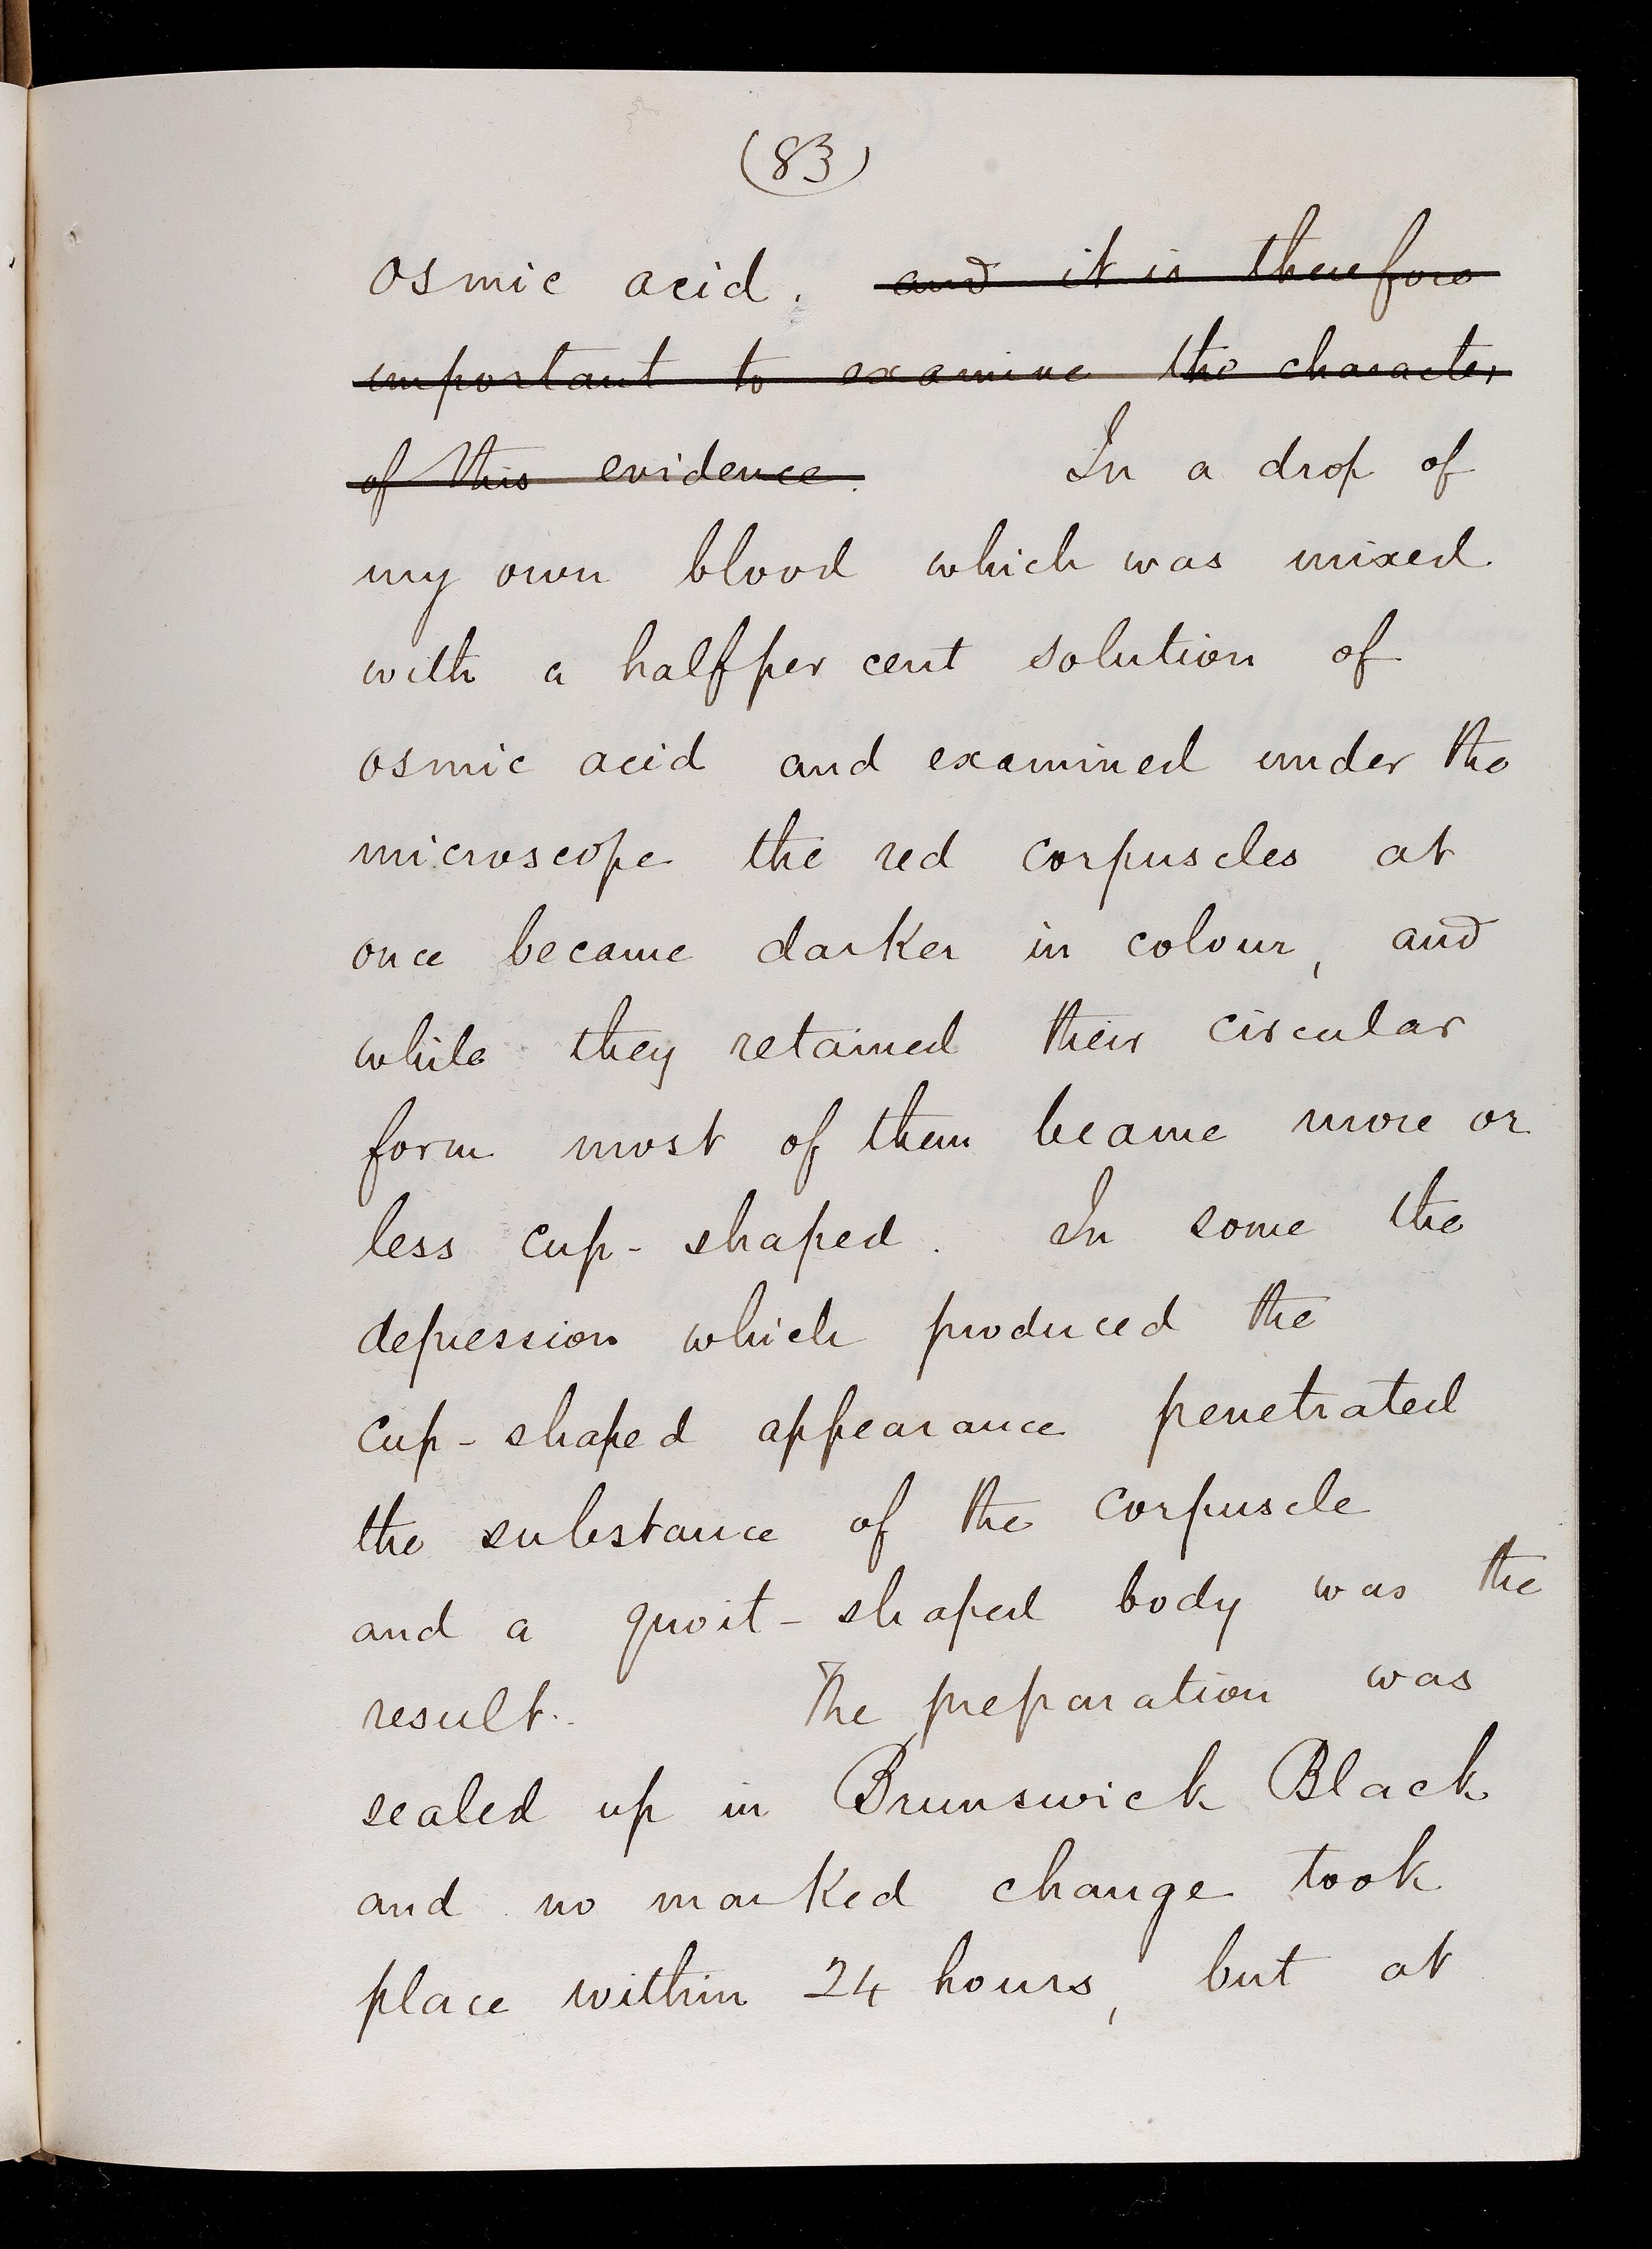 (83)
osmic acid. and it is therefore
important to examine the character
of this evidence. In a drop of
my own blood which was mixed
with a half per cent solution of
osmic acid and examined under the
microscope the red corpuscles at
once became darker in colour, and
while they retained their circular
form most of them became more or
less cup-shaped. In some the
depression which produced the
cup-shaped appearance penetrated
the substance of the corpuscle
and a quoit-shaped body was the
result. The preparation was
sealed up in Brunswick Black
and no marked change took
place within 24 hours, but at